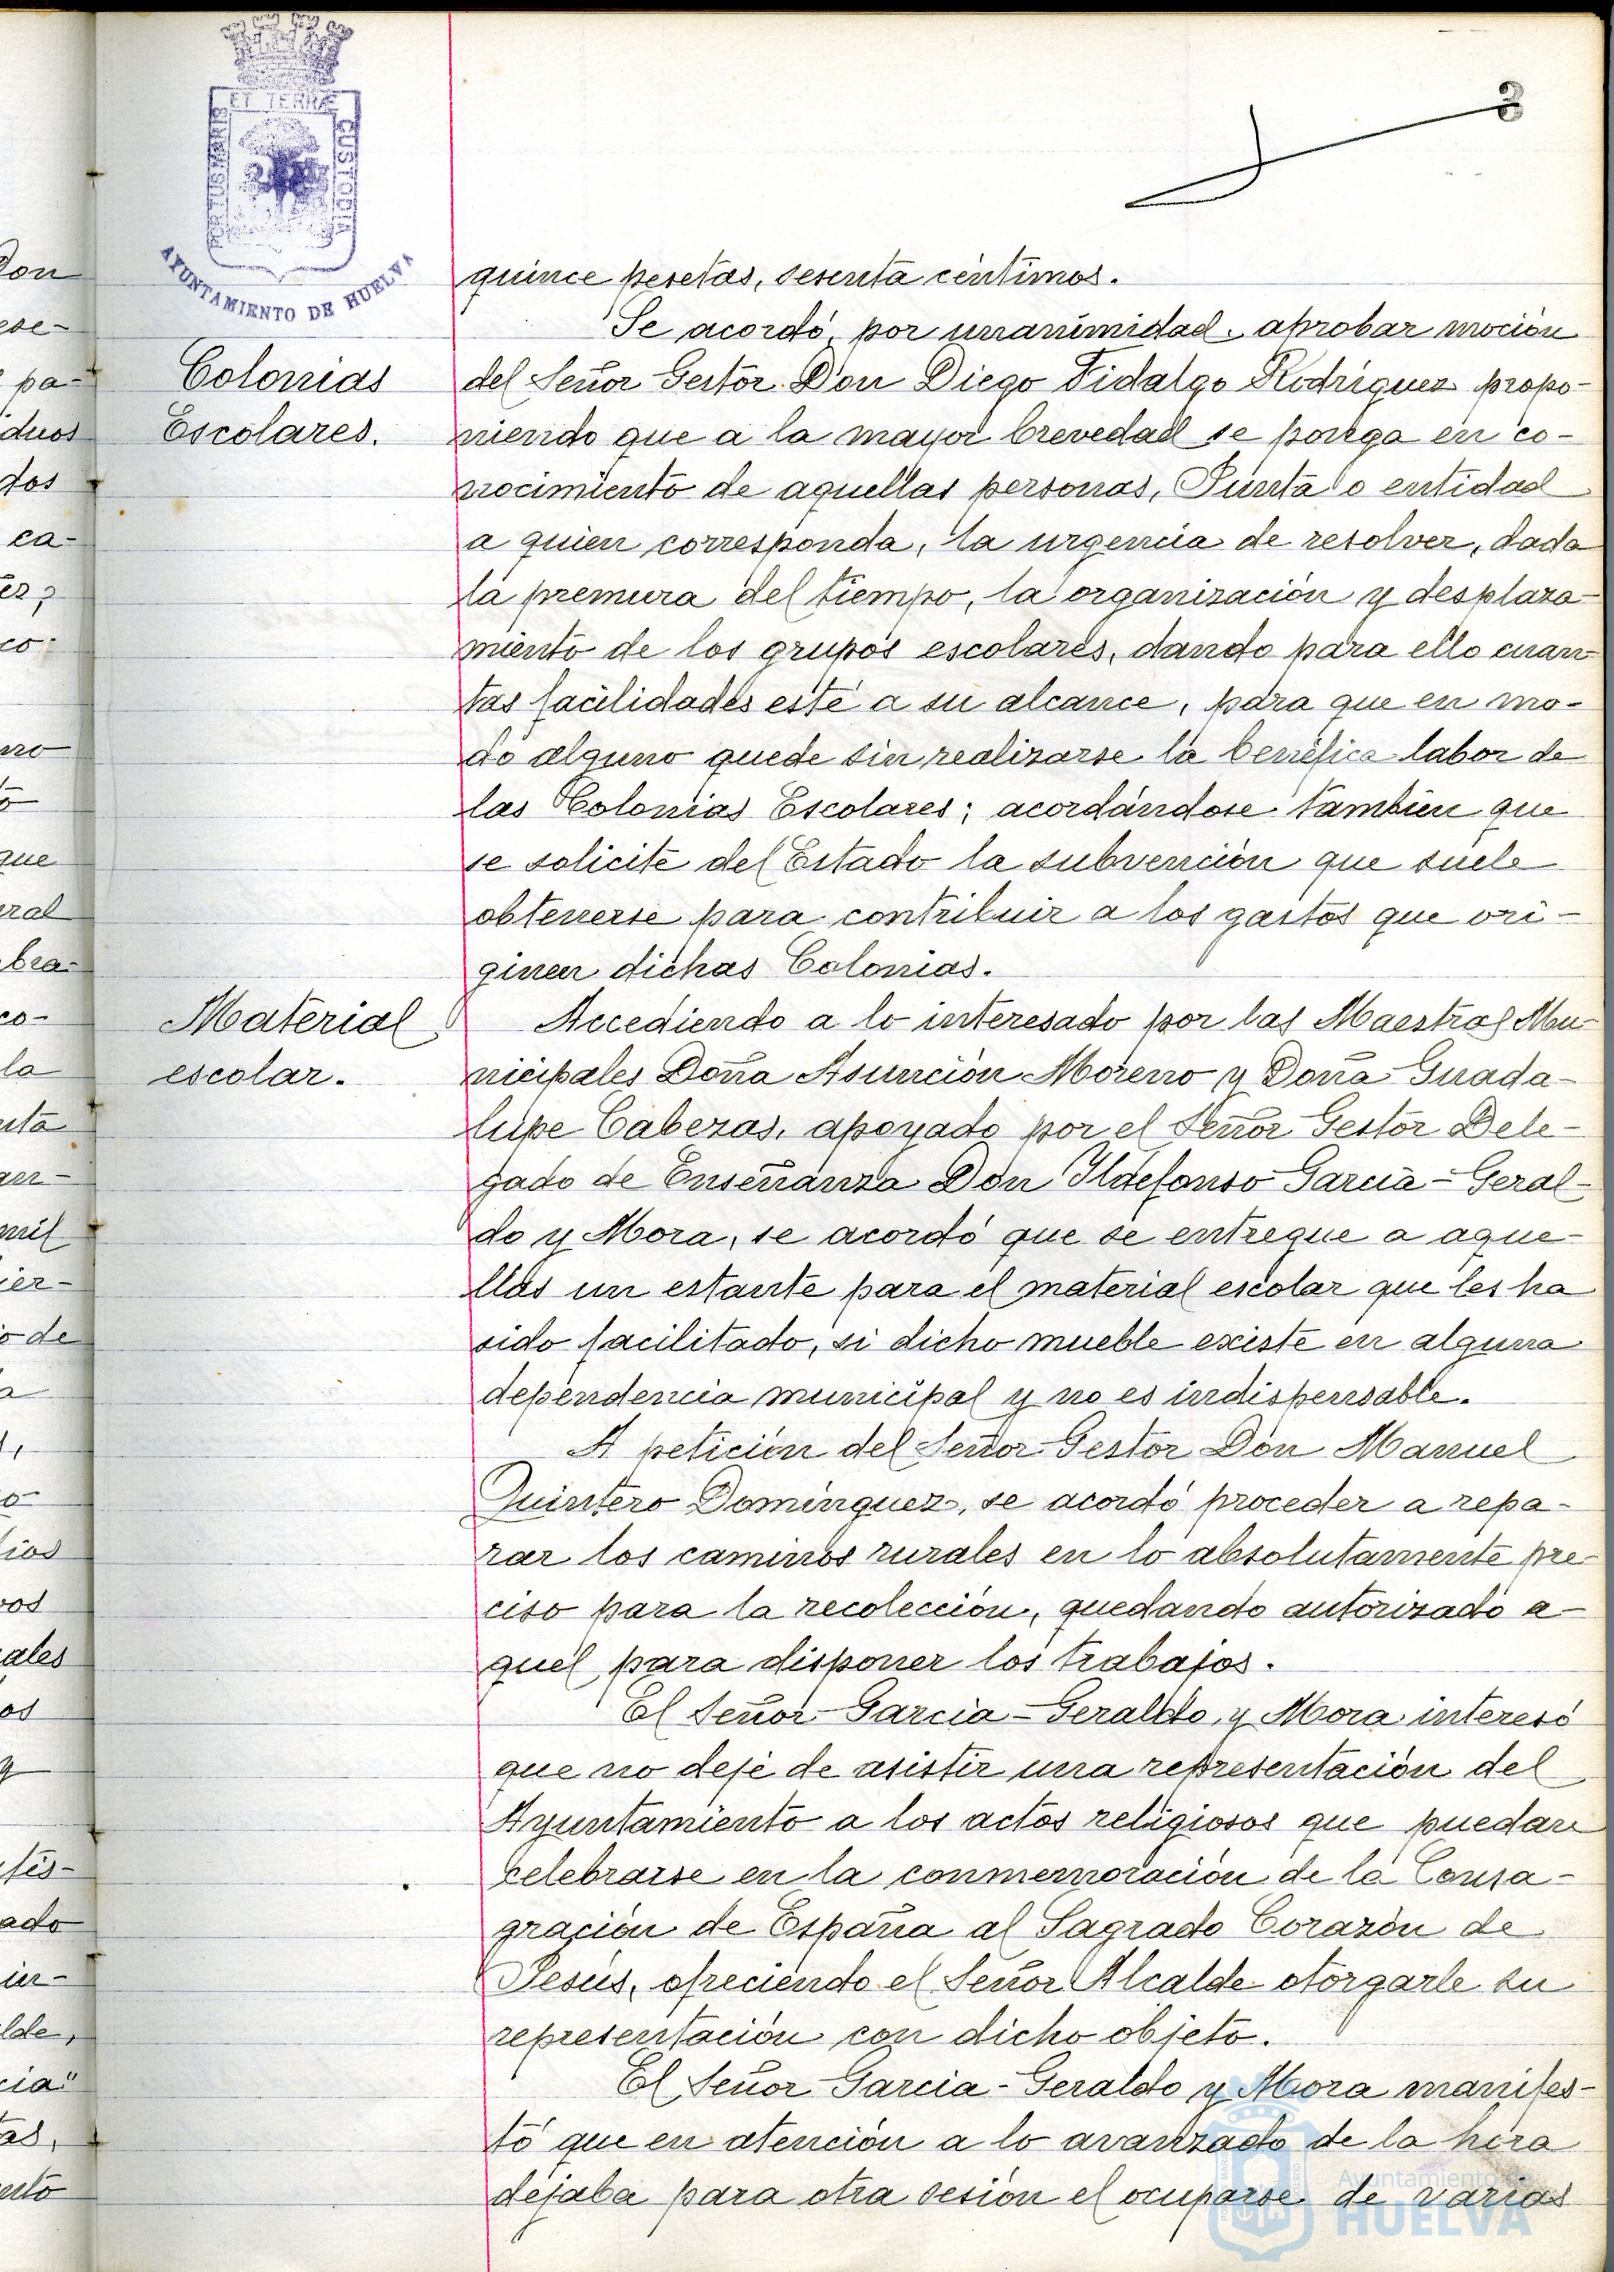 3
ET TERRÆ
PORTUS MARIS
CUSTODIA
AYUNTAMIENTO DE HUELVA
quince pesetas, sesenta céntimos.
Se acordó por unanimidad, aprobar moción
Colonias
Escolares.
del Señor Gestor Don Diego Fidalgo Rodríguez propo-
niendo que a la mayor brevedad se ponga en co-
nocimiento de aquellas personas, Junta o entidad
a quien corresponda, la urgencia de resolver, dada
la premura del tiempo, la organización y desplaza-
miento de los grupos escolares, dando para ello cuan-
tas facilidades esté a su alcance, para que en mo-
do alguno quede sin realizarse la benéfica labor de
las Colonias Escolares; acordándose también que
se solicite del Estado la subvención que suele
obtenerse para contribuir a los gastos que ori-
ginen dichas Colonias.
Material
escolar.
Accediendo a lo interesado por las Maestras Mu-
nicipales Doña Asunción Moreno y Doña Guada-
lupe Cabezas, apoyado por el Señor Gestor Dele-
gado de Enseñanza Don Ildefonso García-Geral-
do y Mora, se acordó que se entregue a aque-
llas un estante para el material escolar que les ha
sido facilitado, si dicho mueble existe en alguna
dependencia municipal y no es indispensable.
A petición del Señor Gestor Don Manuel
Quintero Domínguez, se acordó proceder a repa-
rar los caminos rurales en lo absolutamente pre-
ciso para la recolección, quedando autorizado a-
quel para disponer los trabajos.
El Señor García-Geraldo y Mora interesó
que no deje de asistir una representación del
Ayuntamiento a los actos religiosos que puedan
celebrarse en la conmemoración de la Consa-
gración de España al Sagrado Corazón de
Jesús, ofreciendo el Señor Alcalde otorgarle su
representación con dicho objeto.
El Señor García-Geraldo y Mora manifes-
tó que en atención a lo avanzado de la hora
dejaba para otra sesión el ocuparse de varias
Ayuntamiento de
HUELVA